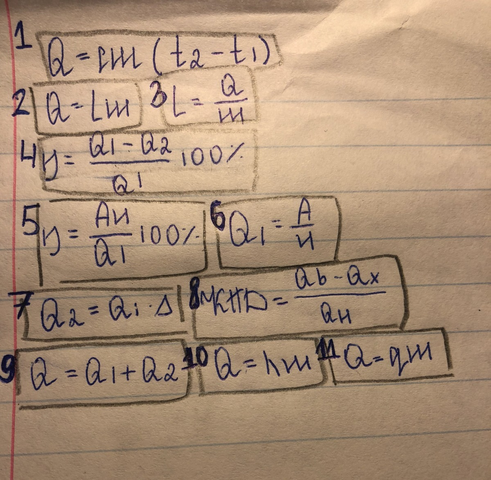 1 Q = cm (t₂ - t₁)
2 Q = Lm 3 L = Q/m
4 η = (Q₁ - Q₂)/Q₁ 100%
5 η = Aн/Q₁ 100% 6 Q₁ = A/н
7 Q₂ = Q₁ · Δ 8 ККД = (Qb - Qx)/Qн
9 Q = Q₁ + Q₂ 10 Q = λm 11 Q = qm